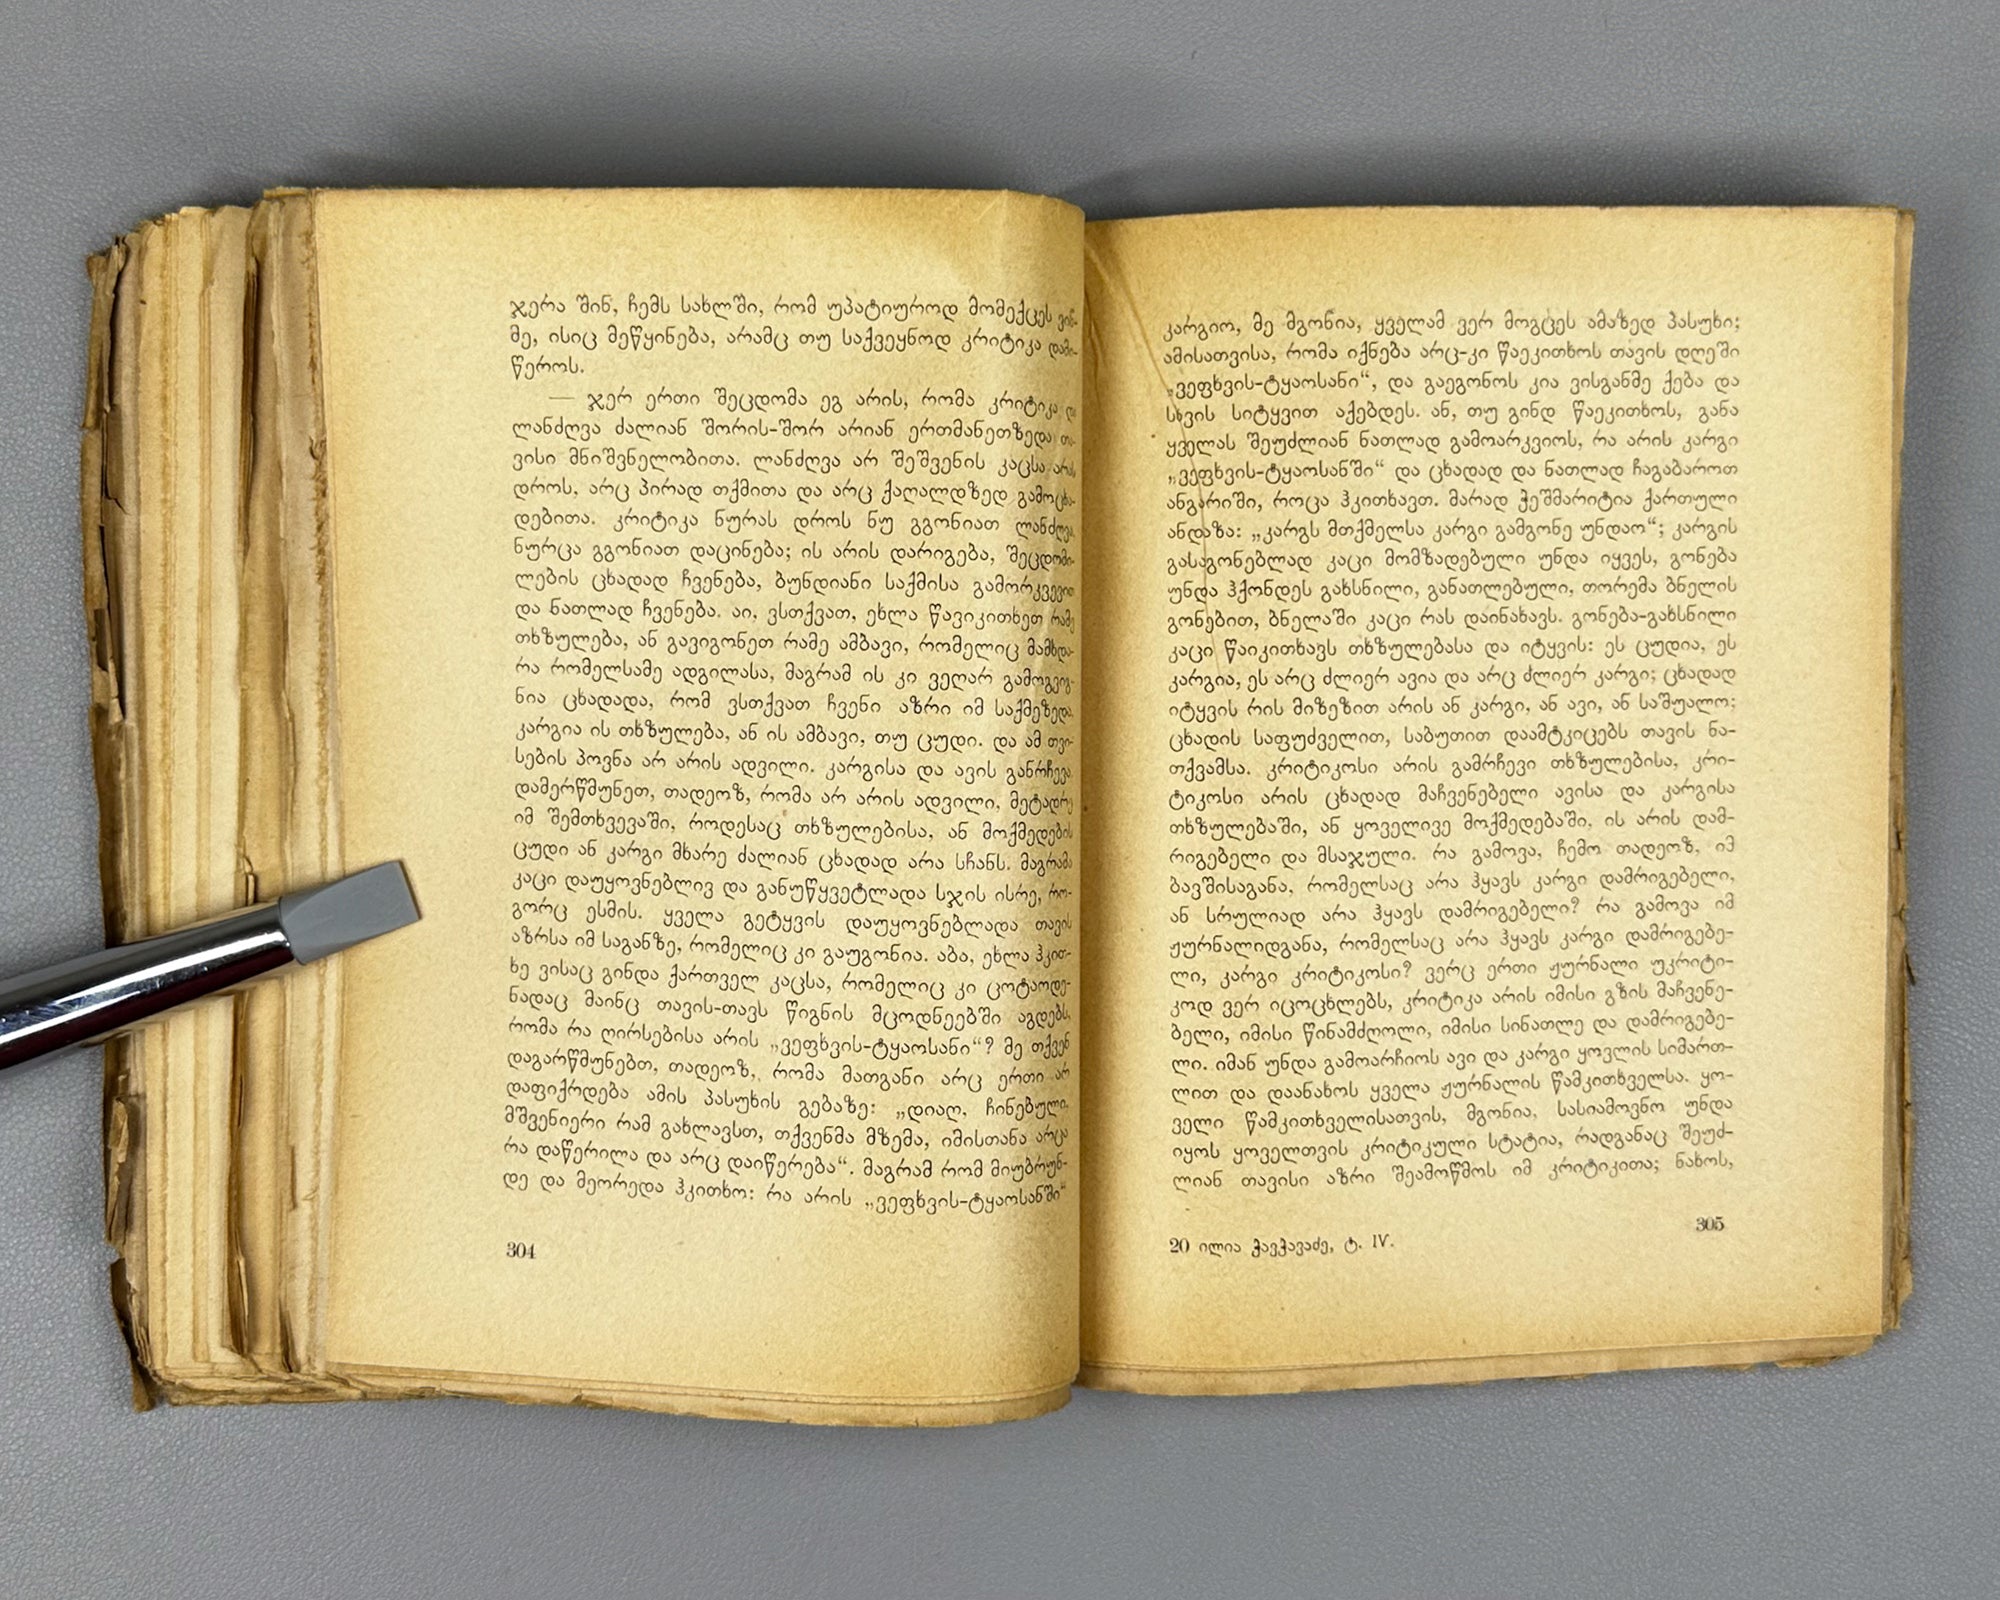 ჯერა შინ, ჩემს სახლში, რომ უპატიუროდ მომექცეს ვინ-
მე, ისიც მეწყინება, არამც თუ საქვეყნოდ კრიტიკა დამი-
წეროს.
— ჯერ ერთი შეცდომა ეგ არის, რომა კრიტიკა და
ლანძღვა ძალიან შორის-შორ არიან ერთმანეთზედა თა-
ვისი მნიშვნელობითა. ლანძღვა არ შეშვენის კაცსა არას
დროს, არც პირად თქმითა და არც ქაღალდზედ გამოცხა-
დებითა. კრიტიკა ნურას დროს ნუ გგონიათ ლანძღვა,
ნურცა გგონიათ დაცინება; ის არის დარიგება, შეცდომი-
ლების ცხადად ჩვენება, ბუნდიანი საქმისა გამორკვევით
და ნათლად ჩვენება. აი, ვსთქვათ, ეხლა წავიკითხეთ რამე
თხზულება, ან გავიგონეთ რამე ამბავი, რომელიც მამხდა-
რა რომელსამე ადგილასა, მაგრამ ის კი ვეღარ გამოგვიგ-
ნია ცხადადა, რომ ვსთქვათ ჩვენი აზრი იმ საქმეზედა,
კარგია ის თხზულება, ან ის ამბავი, თუ ცუდი. და ამ თვი-
სების პოვნა არ არის ადვილი. კარგისა და ავის განრჩევა,
დამერწმუნეთ, თადეოზ, რომა არ არის ადვილი, მეტადრე
იმ შემთხვევაში, როდესაც თხზულებისა, ან მოქმედების
ცუდი ან კარგი მხარე ძალიან ცხადად არა სჩანს. მაგრამა
კაცი დაუყოვნებლივ და განუწყვეტლადა სჯის ისრე, რო-
გორც ესმის. ყველა გეტყვის დაუყოვნებლადა თავის
აზრსა იმ საგანზე, რომელიც კი გაუგონია. აბა, ეხლა ჰკით-
ხე ვისაც გინდა ქართველ კაცსა, რომელიც კი ცოტაოდე-
ნადაც მაინც თავის-თავს წიგნის მცოდნეებში აგდებს,
რომა რა ღირსებისა არის „ვეფხვის-ტყაოსანი“? მე თქვენ
დაგარწმუნებთ, თადეოზ, რომა მათგანი არც ერთი არ
დაფიქრდება ამის პასუხის გებაზე: „დიაღ, ჩინებული,
მშვენიერი რამ გახლავსთ, თქვენმა მზემა, იმისთანა არცა
რა დაწერილა და არც დაიწერება“. მაგრამ რომ მიუბრუნ-
დე და მეორედა ჰკითხო: რა არის „ვეფხვის-ტყაოსანში“
304
კარგიო, მე მგონია, ყველამ ვერ მოგცეს ამაზედ პასუხი;
ამისათვისა, რომა იქნება არც-კი წაეკითხოს თავის დღეში
„ვეფხვის-ტყაოსანი“, და გაეგონოს კია ვისგანმე ქება და
სხვის სიტყვით აქებდეს. ან, თუ გინდ წაეკითხოს, განა
ყველას შეუძლიან ნათლად გამოარკვიოს, რა არის კარგი
„ვეფხვის-ტყაოსანში“ და ცხადად და ნათლად ჩაგაბაროთ
ანგარიში, როცა ჰკითხავთ. მარად ჭეშმარიტია ქართული
ანდაზა: „კარგს მთქმელსა კარგი გამგონე უნდაო“; კარგის
გასაგონებლად კაცი მომზადებული უნდა იყვეს, გონება
უნდა ჰქონდეს გახსნილი, განათლებული, თორემა ბნელის
გონებით, ბნელაში კაცი რას დაინახავს. გონება-გახსნილი
კაცი წაიკითხავს თხზულებასა და იტყვის: ეს ცუდია, ეს
კარგია, ეს არც ძლიერ ავია და არც ძლიერ კარგი; ცხადად
იტყვის რის მიზეზით არის ან კარგი, ან ავი, ან საშუალო;
ცხადის საფუძველით, საბუთით დაამტკიცებს თავის ნა-
თქვამსა. კრიტიკოსი არის გამრჩევი თხზულებისა, კრი-
ტიკოსი არის ცხადად მაჩვენებელი ავისა და კარგისა
თხზულებაში, ან ყოველივე მოქმედებაში. ის არის დამ-
რიგებელი და მსაჯული. რა გამოვა, ჩემო თადეოზ, იმ
ბავშისაგანა, რომელსაც არა ჰყავს კარგი დამრიგებელი,
ან სრულიად არა ჰყავს დამრიგებელი? რა გამოვა იმ
ჟურნალიდგანა, რომელსაც არა ჰყავს კარგი დამრიგებე-
ლი, კარგი კრიტიკოსი? ვერც ერთი ჟურნალი უკრიტი-
კოდ ვერ იცოცხლებს, კრიტიკა არის იმისი გზის მაჩვენე-
ბელი, იმისი წინამძღოლი, იმისი სინათლე და დამრიგებე-
ლი. იმან უნდა გამოარჩიოს ავი და კარგი ყოვლის სიმართ-
ლით და დაანახოს ყველა ჟურნალის წამკითხველსა. ყო-
ველი წამკითხველისათვის, მგონია, სასიამოვნო უნდა
იყოს ყოველთვის კრიტიკული სტატია, რადგანაც შეუძ-
ლიან თავისი აზრი შეამოწმოს იმ კრიტიკითა; ნახოს,
20 ილია ჭავჭავაძე, ტ. IV.
305